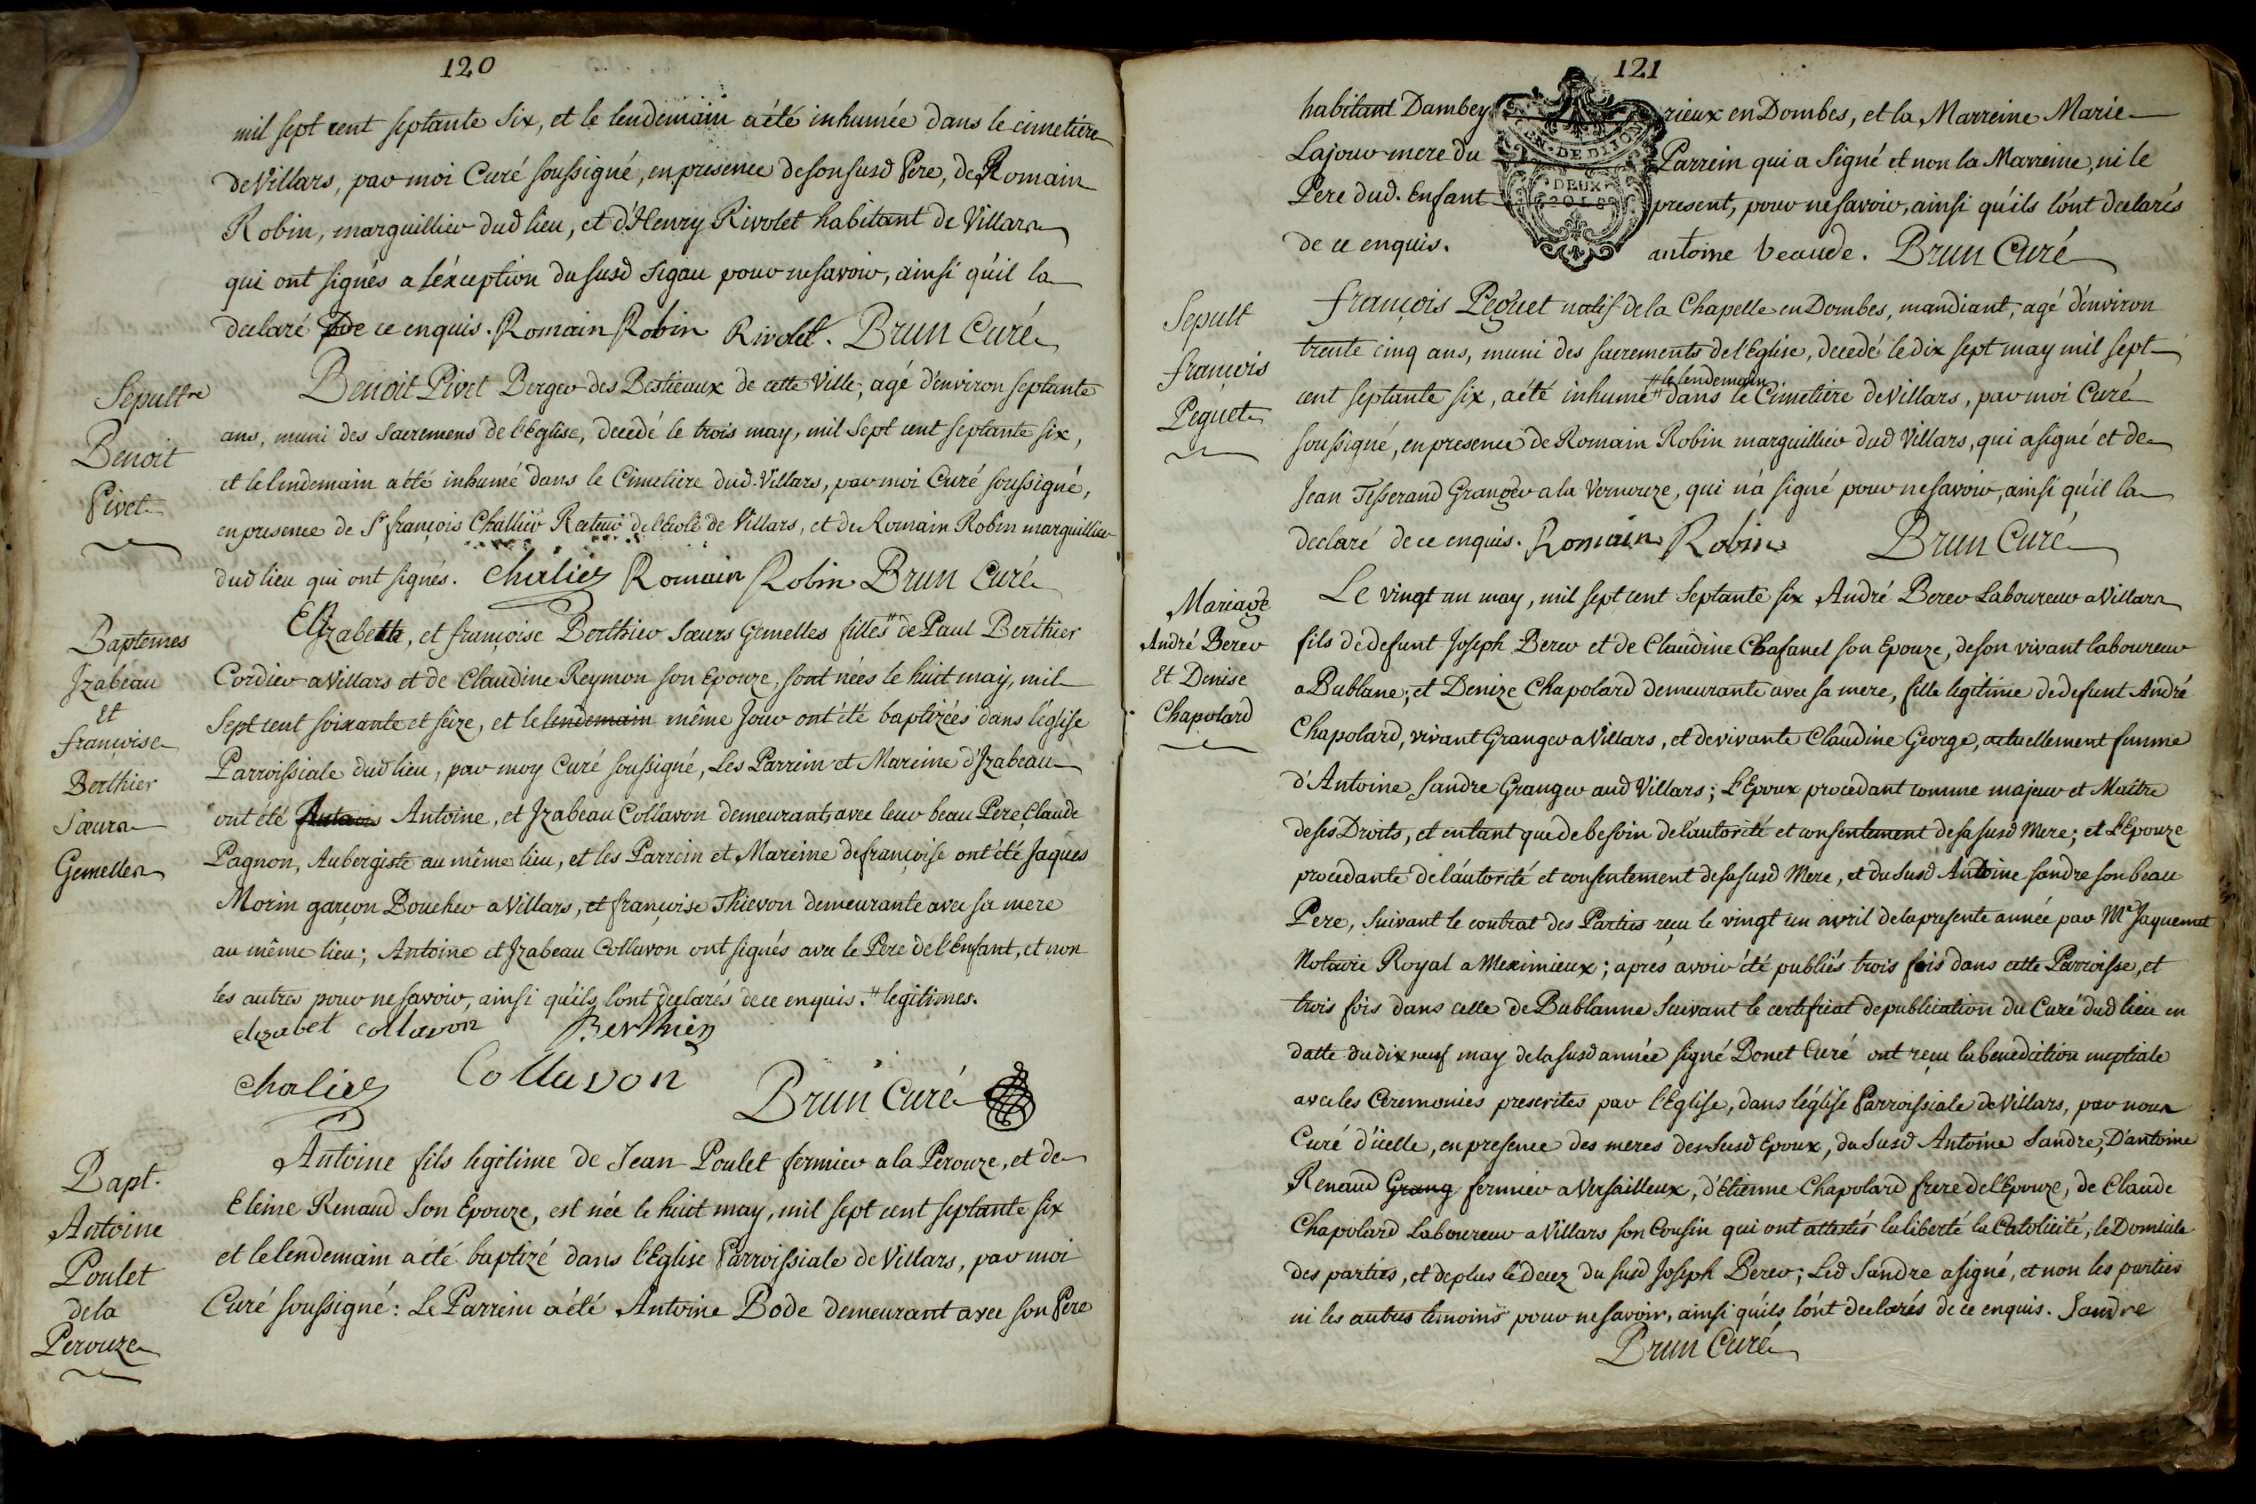 120
mil sept cent septante six, et le lendemain a été inhumée dans le cimetiere
de Villars, par moi Curé soussigné, en presence de son susd Pere, de Romain
Robin, marguillier dud lieu, et d'Henry Rivolet habitant de Villars
qui ont signés a l'éxception du susd Sigau pour ne savoir, ainsi qu'il la
declaré de ce enquis. Romain Robin Rivolet. Brun Curé
Sepultre
Benoit
Pivet
Benoit Pivet Berger des Bestieaux de cette Ville, agé d'environ septante
ans, muni des Sacremens de l'Eglise, decedé le trois may, mil sept cent septante six,
et le lendemain a été inhumé dans le Cimetiere dud. Villars, par moi Curé soussigné,
en presence de Sr françois Challier Recteur de l'école de Villars, et de Romain Robin marguillier
dud lieu qui ont signés. chalier Romain Robin Brun Curé
Baptemes
Izabeau
Et
françoise
Berthier
Sœurs
Gemelles
Elizabeth, et françoise Berthier Sœurs Gemelles filles # de Paul Berthier
Cordier a Villars et de Claudine Reymon son Epouze, sont nées le huit may, mil
Sept cent soixante et séize, et le lendemain même Jour ont été baptizées dans l'église
Parroissiale dud lieu, par moy Curé soussigné, Les Parrein et Mareine d'Izabeau
ont été Antoine, et Izabeau Collavon demeurants avec leur beau Pere Claude
Pagnon, Aubergiste au même lieu, et les Parrein et Mareine de françoise ont été Jaques
Morin garçon Boucher a Villars, et françoise Thievon demeurante avec sa mere
au même lieu; Antoine et Izabeau Collavon ont signés avec le Pere de l'Enfant, et non
les autres pour ne savoir, ainsi qu'ils l'ont declarés de ce enquis. # legitimes.
elizabet collavon Berthier
chalier Collavon Brun Curé
Bapt.
Antoine
Poulet
de la
Perouze
Antoine fils legitime de Jean Poulet fermier a la Perouze, et de
Eleine Renaud son Epouze, est née le huit may, mil sept cent septante six
et le lendemain a été baptizé dans l'Eglise Parroissiale de Villars, par moi
Curé soussigné: Le Parrein a été Antoine Bode demeurant avec son Pere
121
habitant Dambeyrieux en Dombes, et la Marreine Marie
Lajour mere du Parrein qui a signé et non la Marreine, ni le
Pere dud. Enfant present, pour ne savoir, ainsi qu'ils l'ont declarés
de ce enquis. antoine beaude. Brun Curé
EN. DE DIJON
DEUX
SOLS
Sepult
françois
Peguet
françois Peguet natif de la Chapelle en Dombes, mandiant, agé d'environ
trente cinq ans, muni des sacrements de l'Eglise, decedé le dix sept may mil sept
cent septante six, a été inhumé # le lendemain # dans le Cimetiere de Villars, par moi Curé
soussigné, en presence de Romain Robin marguillier dud Villars, qui a signé et de
Jean Tisserand Granger a la Vernouze, qui n'a signé pour ne savoir, ainsi qu'il la
declaré de ce enquis. Romain Robin Brun Curé
Mariage
André Berer
Et Denise
Chapolard
Le vingt un may, mil sept cent septante six André Berer Laboureur a Villars
fils de defunt Joseph Berer et de Claudine Chafanel son Epouze, de son vivant laboureur
a Bublane; et Denize Chapolard demeurante avec sa mere, fille legitime de defunt André
Chapolard, vivant Granger a Villars, et de vivante Claudine George, actuellement femme
d'Antoine Sandre Granger aud Villars; l'Epoux procedant comme majeur et Maître
de ses Droits, et entant que de besoin de l'autorité et consentement de sa susd Mere; et l'Epouze
procedante de l'autorité et consentement de sa susd Mere, et du susd Antoine Sandre son beau
Pere, Suivant le contrat des Parties reçu le vingt un avril de la presente année par Me Jaquemet
Notaire Royal a Meximieux; apres avoir été publiés trois fois dans cette Parroisse, et
trois fois dans celle de Bublanne Suivant le certificat de publication du Curé dud lieu en
datte du dix neuf may de la susd année signé Bonet Curé ont reçu la benediction nuptiale
avec les Ceremonies prescrites par l'Eglise, dans l'église Parroissiale de Villars, par nous
Curé d'icelle, en presence des meres des Susd Epoux, du Susd Antoine Sandre, D'antoine
Renaud Grang fermier a Versailleux, d'Etienne Chapolard frere de l'Epouze, de Claude
Chapolard Laboureur a Villars son Cousin qui ont attestés la liberté la Catolicité, le Domicile
des parties, et de plus le décez du susd Joseph Berer; Led Sandre a signé, et non les parties
ni les autres témoins pour ne savoir, ainsi qu'ils l'ont declarés de ce enquis. Sandre
Brun Curé